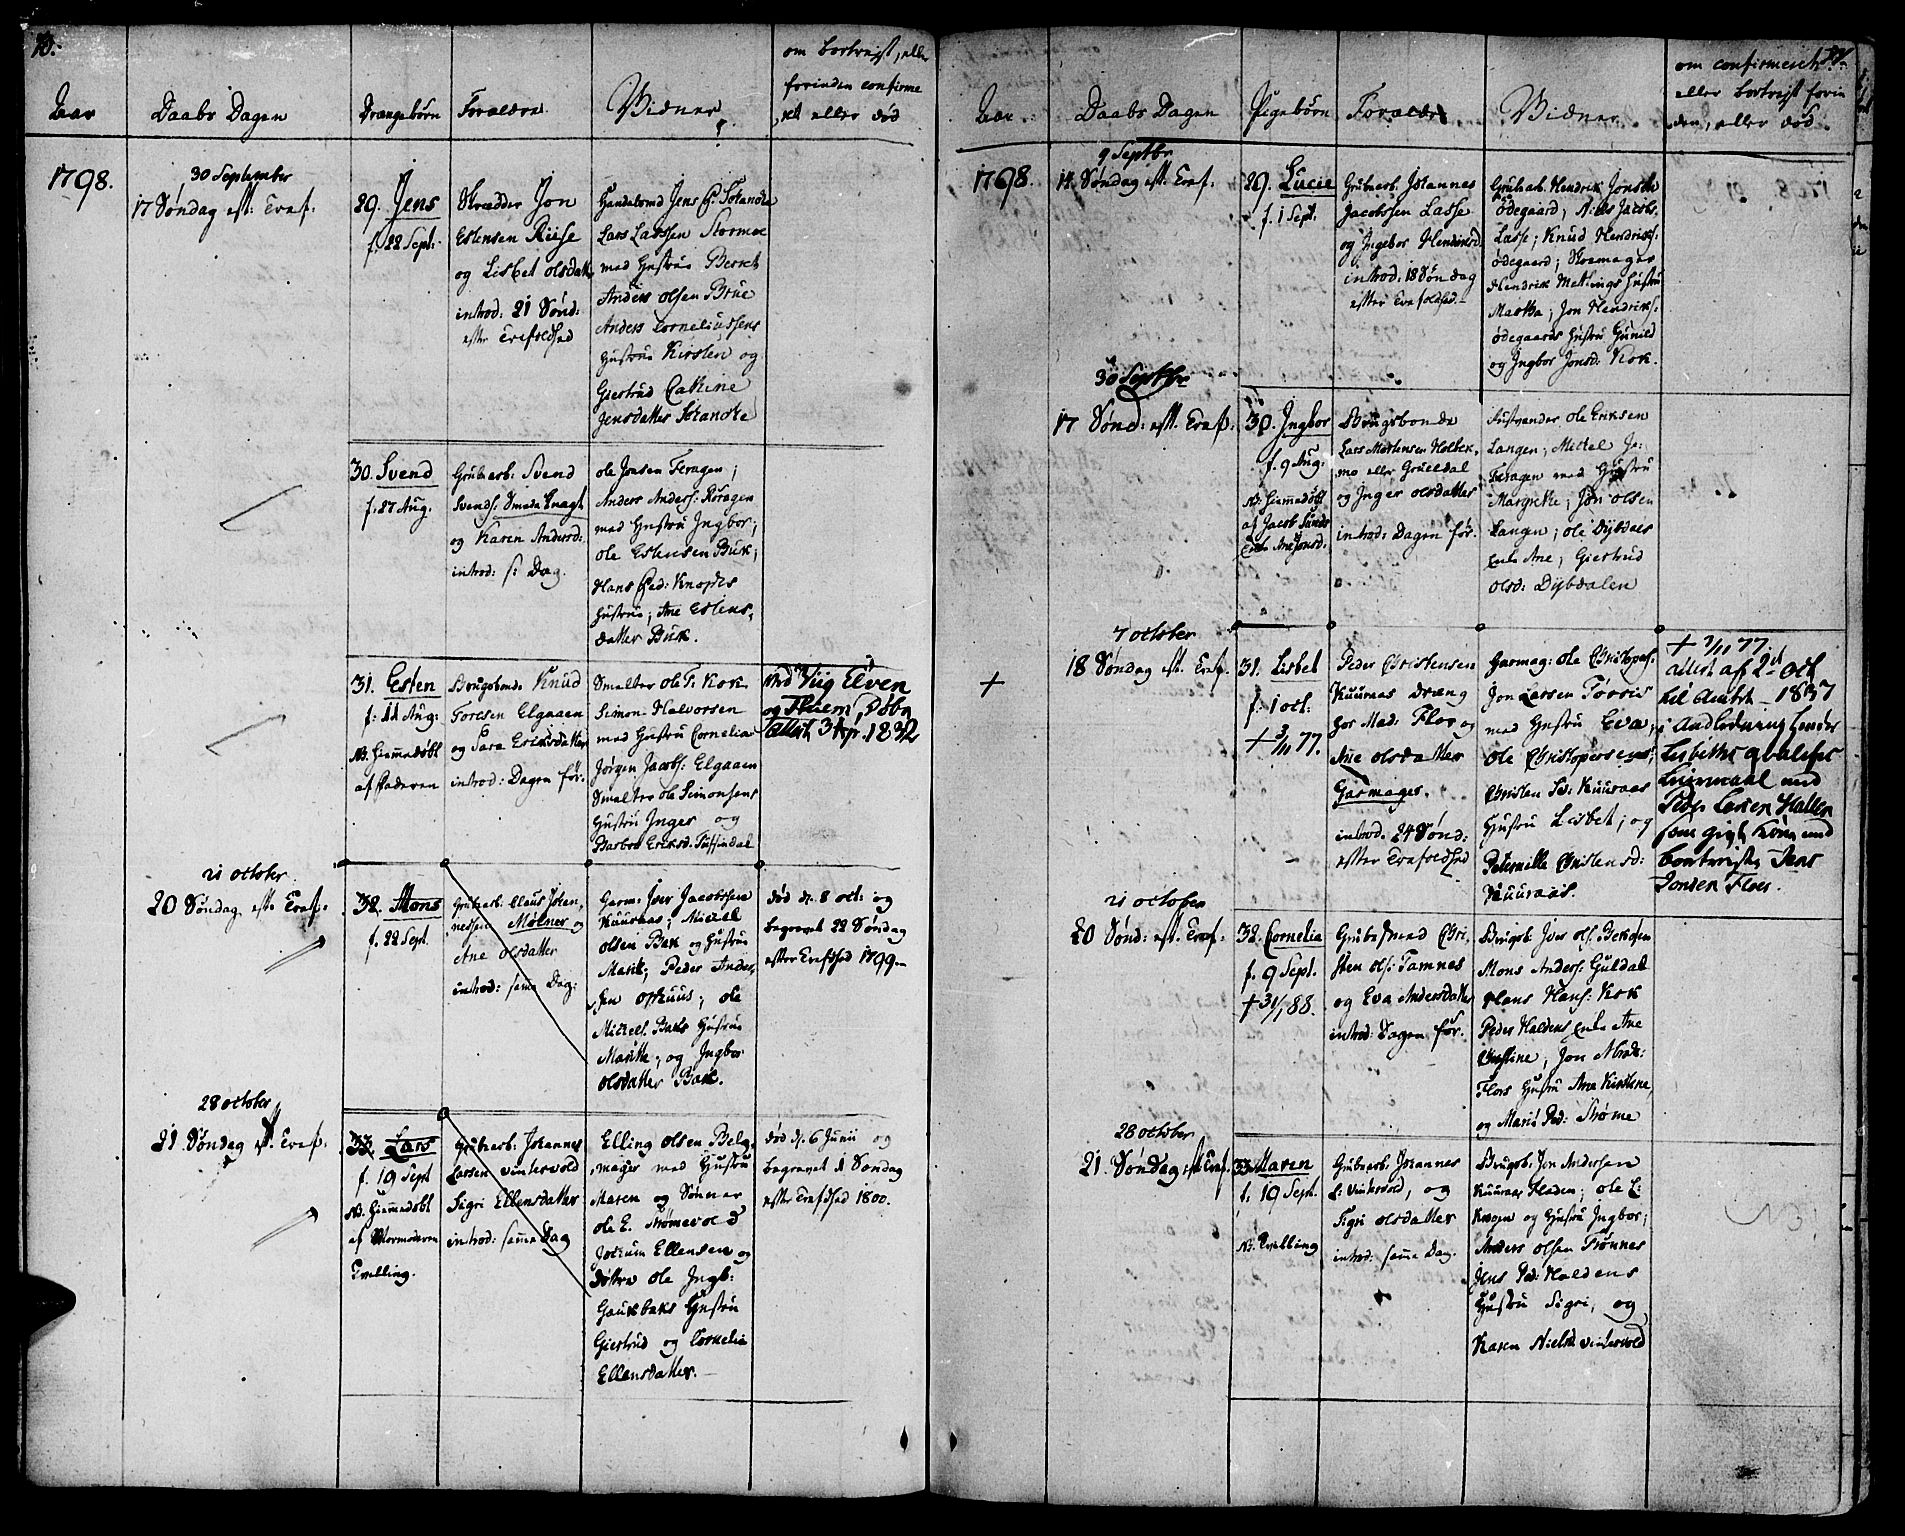 Aar
Daabs Dagen
Drængebørn
Forældre
Vidner
om bortrejst, eller
forinden confirme
ret eller død
1798.
30 September
17 Søndag eft: Tref:
29. Jens
f. 22 Sept:
Skrædder Jon
Estensen Riise
og Lisbet olsdatt
introd: 21 Sønd:
efter Trefoldhed
Lars Larssen Stormoe
med Hustrue Berret
Anders olsen Brue
Anders Corneliussens
Hustrue Kirsten og
Giertrud Catrine
Jensdatter
30. Svend
f: 27 Aug.
Grubearb: Svend
Svends:
og Karen Andersd:
introd: s: Dag.
ole Jonsen Feragen;
Anders Anders: Røragen
med Hustru Ingbor;
ole Estensen Buk;
Hans Ped: Knophs
Hustrue; Ane Estens-
datter Buk.
31. Esten
f: 11 Aug:
NB. Hiemmedøbt
af Faderen
Brugsbonde Knud
Foresen Elgaaen
og Sara Ericksdatter
introd: Dagen før.
Smelter ole T. Kok
Simon Halvorsen
med Hustru Cornelia
Jørgen Jacobs: Elgaaen
Smelter ole Simonsens
Hustru Inger og
Barbro Ericksd:
attest 3 Apr. 1832
21 october
20 Søndag eft: Tref:
32. Mons
f. 22 Sept.
Grubearb: Claus Johan-
nessen Mølner og
Ane olsdatter
introd: samme Dag:
Garm: Iver Jacobssen
Kuuraas; Mickel
olsen Bak og Hustrue
Marit; Peder Anders-
sen ophuus; ole
Mickels: Baks Hustrue
Marite; og Ingbor
olsdatter Bak.
død d. 8 oct: og
begravet 22 Søndag
efter Trefhed 1799.
28 october
21 Søndag eft: Tref:
33. Lars
f. 19 Sept
NB. Hiemmedøbt
af Mormoderen
Tvelling.
Grubearb: Johannes
Larsen vintervold
Sigri Ellensdatter
introd: samme Dag
Elling olsen Belg-
mager med Hustru
Maren og Sønner
ole E. Strømevold
Jochum Ellensen og
døttre ole Ingb:
Gaukbaks Hustru
Giertrud og Cornelia
Ellensdatter.
død d. 6 Junii og
begravet 1 Søndag
efter Trefhed 1800.
Aar
Daabs Dagen
Pigebørn
Forældre
Vidner
om confirmeret
eller bortrejst forin
den, eller død.
1798.
9 Septbr
14. Søndag eft: Tref:
29. Lucie
f. 1 Sept.
Grubearb. Johannes
Jacobssen Lasse
og Ingebor Hendrichsd
introd: 18 Søndag
efter Trefoldhed.
Grubearb. Hendrik Jonsen
ødegaard; Niels Jacobs.
Lasse; Knud Hendriks:
ødegaard; Skoemager
Hendrik Mellings Hustru
Martha; Jon Hendriks:
ødegaards Hustru Gunild
og Ingbor Jonsd: Kok.
30 Septbr
17 Sønd: eft. Tref:
30. Ingbor
f. 9 Aug:
NB. Hiemmedøbt
af Jacob
Ane Jonsd:
Brugsbonde
Lars Mortensen Holtek-
moe eller Grueldal
og Inger olsdatter
introd: Dagen før.
ole Eriksen
Langen; Mickel Jo:
Feragen med Hustru
Margrethe; Jon olsen
Langen; ole Dybdals
Enke Ane; Giertrud
olsd: Dybdalen
7 october
18 Søndag eft. Tref.
31. Lisbet
f. 1 oct:
+ 3/11 77.
Peder Christensen
Kuuraas Dreng
hos Mad: Flor og
Ane olsdatter
Garmager.
introd. 24 Sønd:
efter Trefoldhed
Garmag: ole Christophs:
Jon Larsen Torris
med Hustru Eva;
ole Christophersens;
Christen Pd: Kuuraas
Hustru Lisbet; og
Peternille Christensd:
Kuuraas.
+ 3/11 77.
attest af 2d Oct
til Amtet 1837
i Anledning hendes
Lisbeths
Leiermaal med
Peder Larsen
bortreiste Jens
Jonsen Floer.
21 october
20 Sønd: eft. Tref.
32. Cornelia
f. 9 Sept.
+ 3/1 88.
Grubesmed Chri-
sten ols: Tamnes
og Eva Andersdatter
introd: Dagen før.
Brugsb: Iver ols:
Mons Anders: Guldal
Hans Hans: Kok
Peder Haldens Enke Ane
Christine; Jon
Flors Hustru Ane Kirstine
og Mari Ped: Strøme
28 october
21. Søndag eft Tref.
33. Maren
f: 19 Sept.
NB. Tvelling
Grubearb: Johannes
L: Vintervold, og
Sigri olsdatter
introd: samme Dag.
Brugsb: Jon Andersen
Kuuraas Haden; ole E:
og Hustru Ingbor;
Anders olsen Trønnes
Jens Ped: Haldens
Hustru Sigri, og
Karen Nielsd vintervold